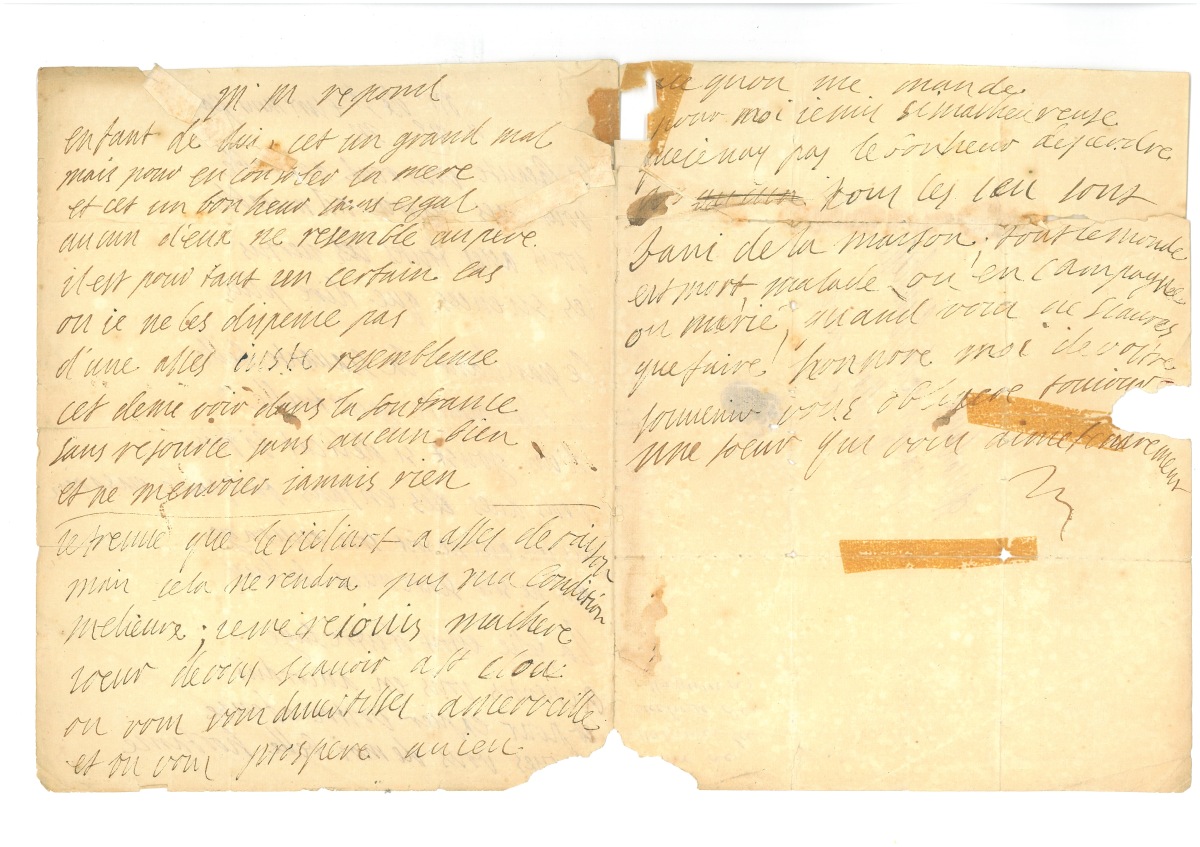 M M repond
enfant de dis, cet un grand mal
mais pour en consoler la mere
et cet un bonheur sans esgal
aucun d'eux ne resemble au pere.
il est pour tant un certain cas
ou ie ne les dispense pas
d'une asses iuste resemblense
cet de me voir dans la soufrance
sans resource sans aucun bien
et ne m'envoier iamais rien
ie treuve que le vieliart a asses de raison
mais cela ne rendra pas ma condition
melieure; ie me reiouis ma chere
soeur de vous scavoir a st
ou vous vous divertisses a merveille
et ou vous prosperé au ieu
ce qu'on me mande
pour moi ie suis si malheureuse
que ie nay pas le bonheur de perdre
tous les ieu sont
bani de la maison. tout le monde
est mort malade ou en campagne
ou marié, quand void de
que faire! honnore moi de votre
souvenir vous obligere toujours
une soeur qui vous aime tendrement